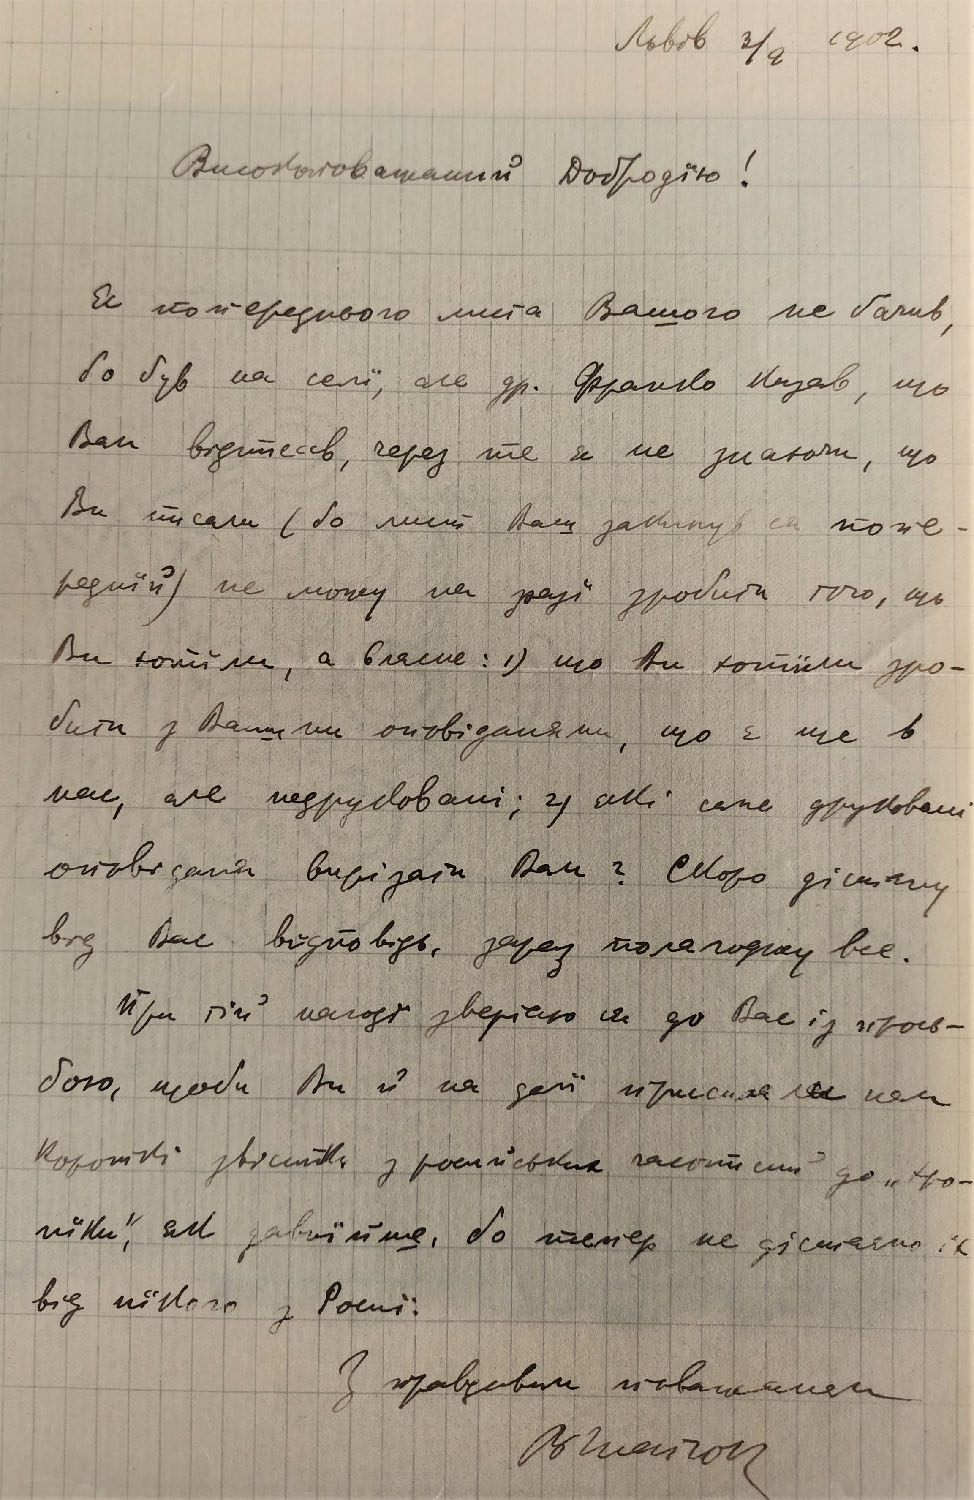 Львів 3/9 1902.
Високоповажаний Добродію!
Я попереднього листа Вашого не бачив,
бо був на селї, але др. Франко казав, що
Вам відписав, через те я не знаючи, що
Ви писали (бо лист Ваш закинув ся попе-
реднїй) не можу на разї зробити того, що
Ви хотїли, а власне: 1) що Ви хотїли зро-
бити з Вашими оповіданями, що є ще в
нас, але недруковані; 2) які саме друковані
оповіданя вирізати Вам? Скоро дістану
від Вас відповідь, зараз полагоджу все.
При тій нагоді звертаю ся до Вас із прось-
бою, щоби Ви й на далї присилали нам
короткі звістки з росийських часописий до „хро-
нїки", як давнїйше, бо тепер не дістаємо їх
від нїкого з Росиї.
З правдивим поважанєм
В Гнатюк